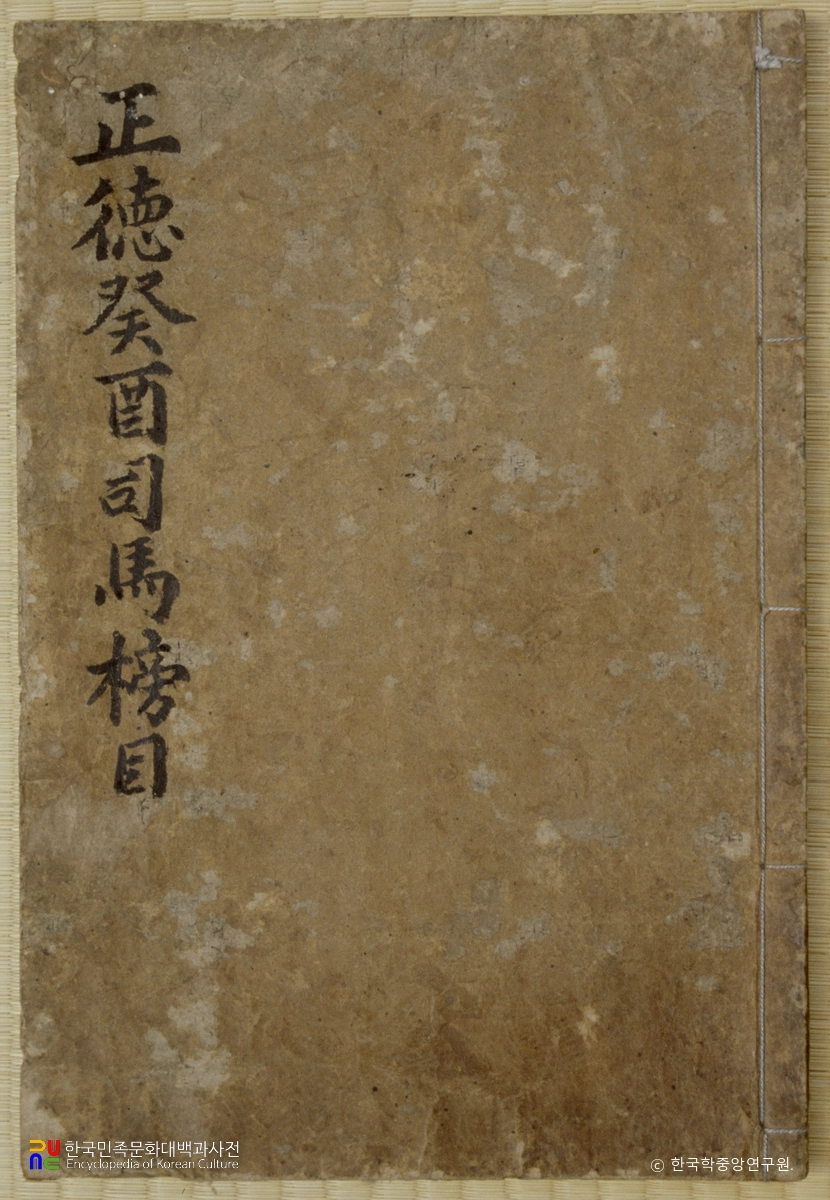 正德癸酉司馬榜目
한국민족문화대백과사전
Encyclopedia of Korean Culture
© 한국학중앙연구원.